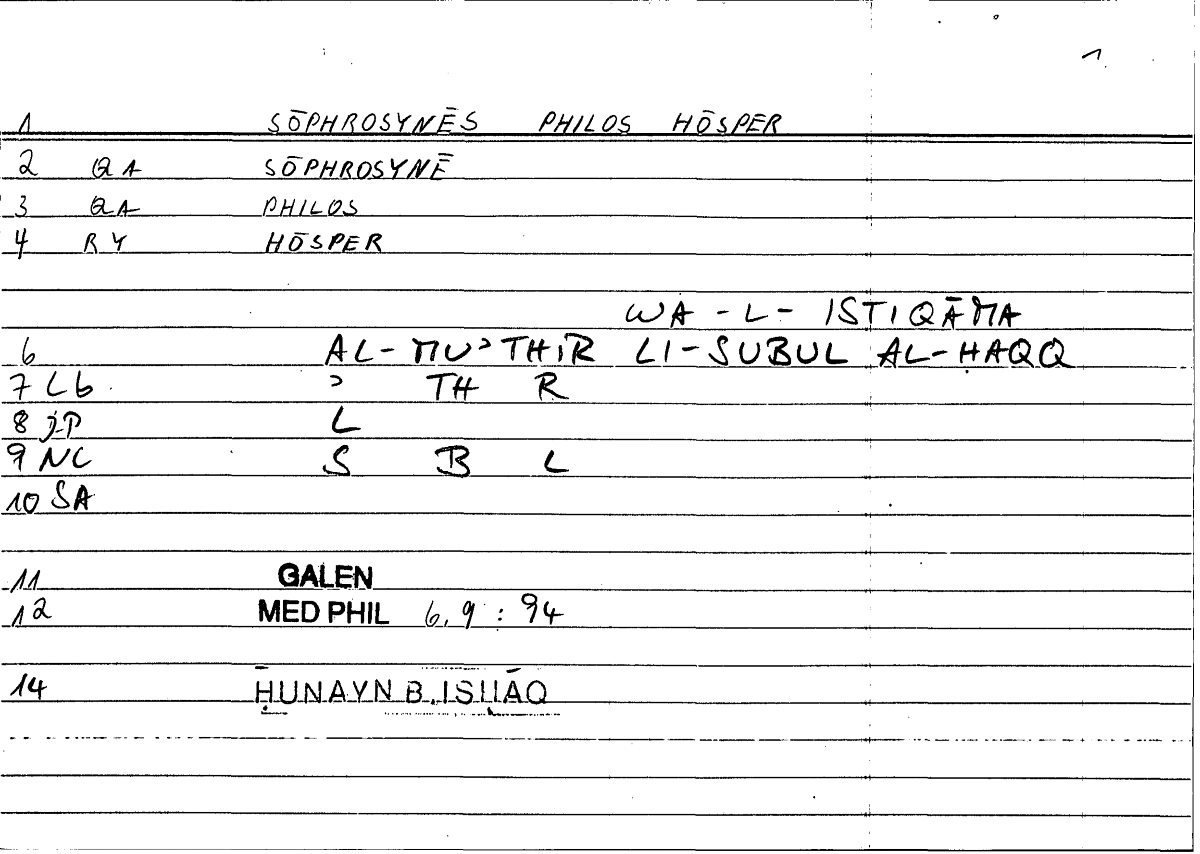 1
1 SŌPHROSYNĒS PHILOS HŌSPER
2 QA SŌPHROSYNĒ
3 QA PHILOS
4 RY HŌSPER
WA - L - ISTIQĀMA
6 AL-MUʾTHIR LI-SUBUL AL-ḤAQQ
7 Lb ʾ TH R
8 jP L
9 NC S B L
10 SA
11 GALEN
12 MED PHIL 6,9 : 94
14 ḤUNAYN B. ISḤĀQ